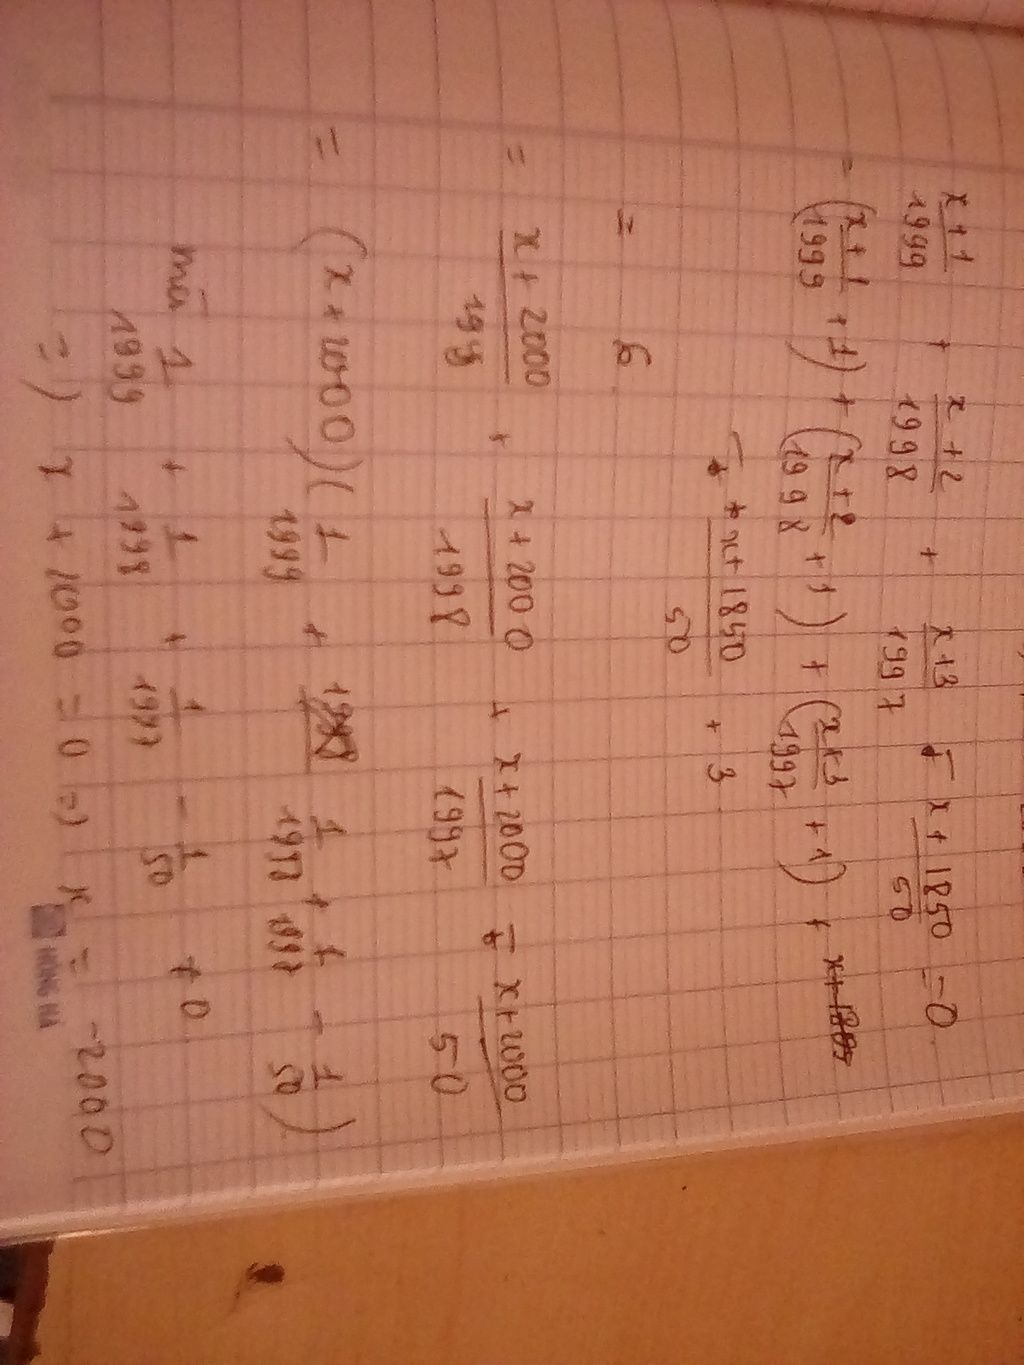 x+1/1999 + x+2/1998 + x+3/1997 - x+1850/50 = 0
= (x+1/1999 + 1) + (x+2/1998 + 1) + (x+3/1997 + 1) +
- x+1850/50 + 3
= 6
= x+2000/199 + x+2000/1998 + x+2000/1997 - x+2000/50
= (x+2000)(1/1999 + 1/1998 + 1/1997 - 1/50)
mà 1/1999 + 1/1998 + 1/1997 - 1/50 ≠ 0
=) x + 2000 = 0 =) x = -2000
HONG HA